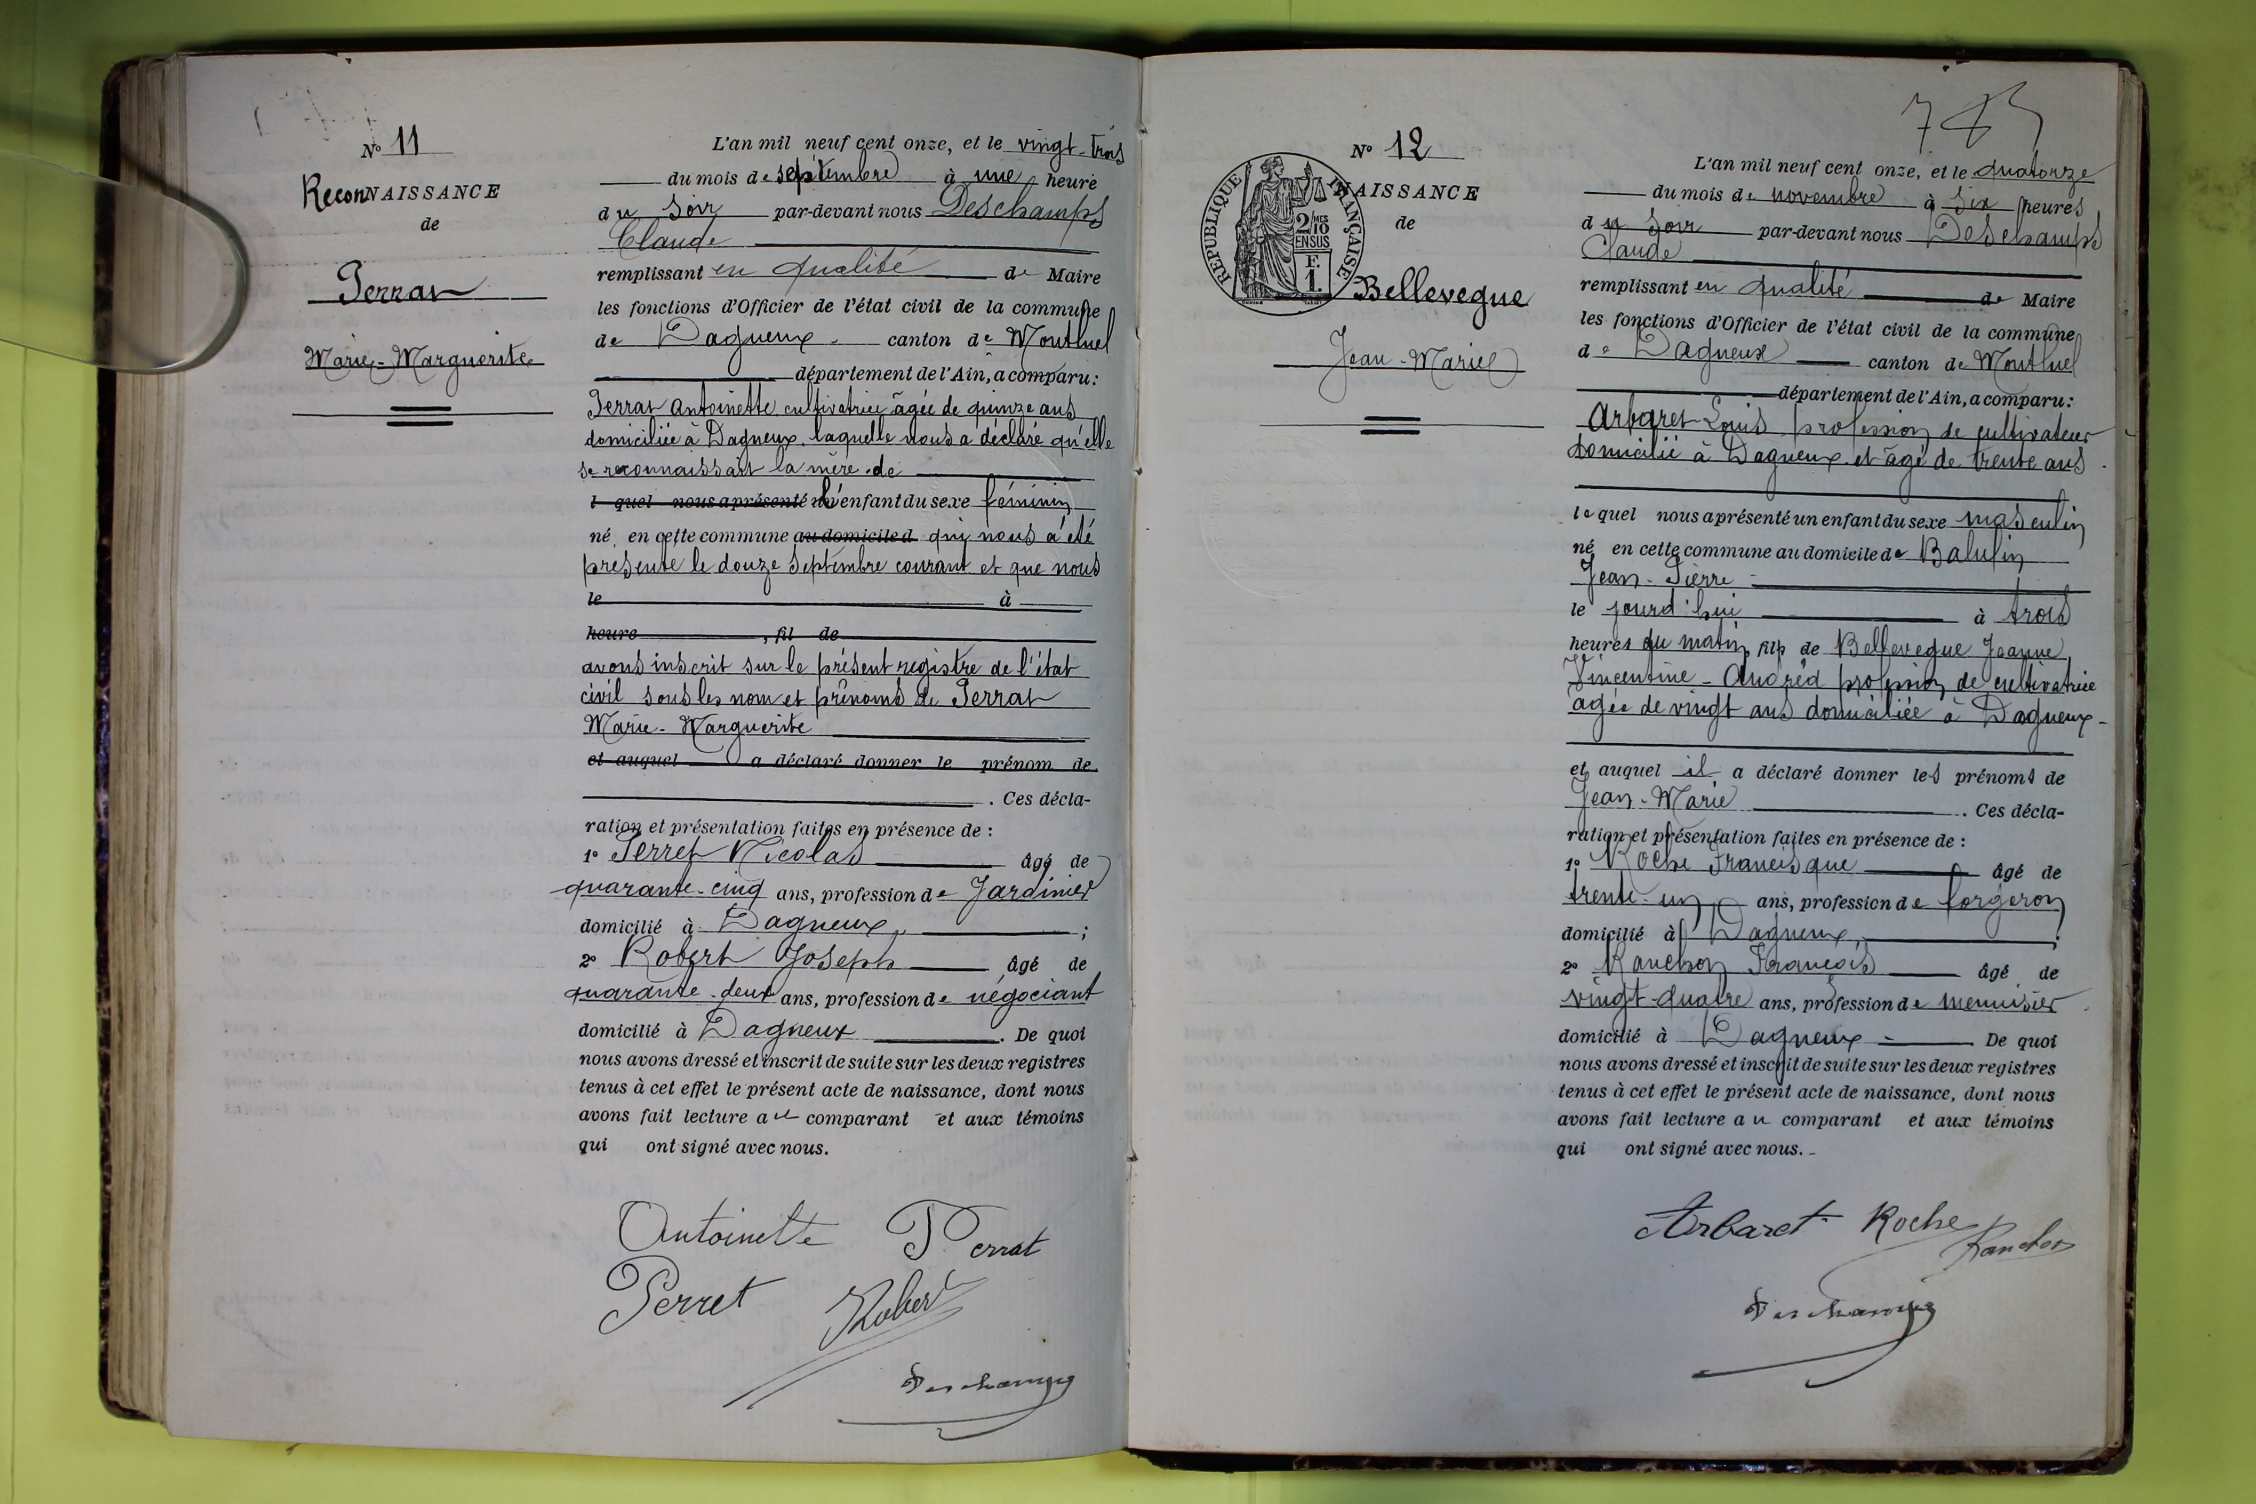 N° 11
ReconNAISSANCE
de
Perrat
Marie-Marguerite
L'an mil neuf cent onze, et le vingt-trois
du mois de septembre à une heure
du soir par-devant nous Deschamps
Claude
remplissant en qualité de Maire
les fonctions d'Officier de l'état civil de la commune
de Dagneux canton de Montluel
département de l'Ain, a comparu :
Perrat Antoinette cultivatrice âgée de quinze ans
domiciliée à Dagneux laquelle nous a déclaré qu'elle
se reconnaissait la mère de
l quel nous a présenté l'enfant du sexe féminin
né en cette commune au domicile d qui nous a été
présenté le douze septembre courant et que nous
le à
heure , fil de
avons inscrit sur le présent registre de l'état
civil sous les nom et prénoms de Perrat
Marie-Marguerite
et auquel a déclaré donner le prénom de
. Ces décla-
ration et présentation faites en présence de :
1° Perret Nicolas âgé de
quarante-cinq ans, profession de Jardinier
domicilié à Dagneux ;
2° Robert Joseph âgé de
quarante-deux ans, profession de négociant
domicilié à Dagneux . De quoi
nous avons dressé et inscrit de suite sur les deux registres
tenus à cet effet le présent acte de naissance, dont nous
avons fait lecture au comparant et aux témoins
qui ont signé avec nous.
Antoinette Perrat
Perret Robert
Deschamps
N° 12
NAISSANCE
de
RÉPUBLIQUE FRANÇAISE
2/10 MES
EN SUS
F.
1.
Bellevegue
Jean-Marie
L'an mil neuf cent onze, et le quatorze
du mois de novembre à six heures
du soir par-devant nous Deschamps
Claude
remplissant en qualité de Maire
les fonctions d'Officier de l'état civil de la commune
de Dagneux canton de Montluel
département de l'Ain, a comparu :
Arbaret Louis profession de cultivateur
domicilié à Dagneux et âgé de trente ans
lequel nous a présenté un enfant du sexe masculin
né en cette commune au domicile de
Jean-Pierre
le jourd'hui à trois
heures du matin, fils de Bellevegue Jeanne
Vincentine-Andréa profession de cultivatrice
âgée de vingt ans domiciliée à Dagneux
et auquel il a déclaré donner les prénoms de
Jean-Marie . Ces décla-
ration et présentation faites en présence de :
1° Roche Francisque âgé de
trente-un ans, profession de forgeron
domicilié à Dagneux ;
2° Ranchon François âgé de
vingt-quatre ans, profession de menuisier
domicilié à Dagneux De quoi
nous avons dressé et inscrit de suite sur les deux registres
tenus à cet effet le présent acte de naissance, dont nous
avons fait lecture au comparant et aux témoins
qui ont signé avec nous.
Arbaret Roche
Ranchon
Deschamps